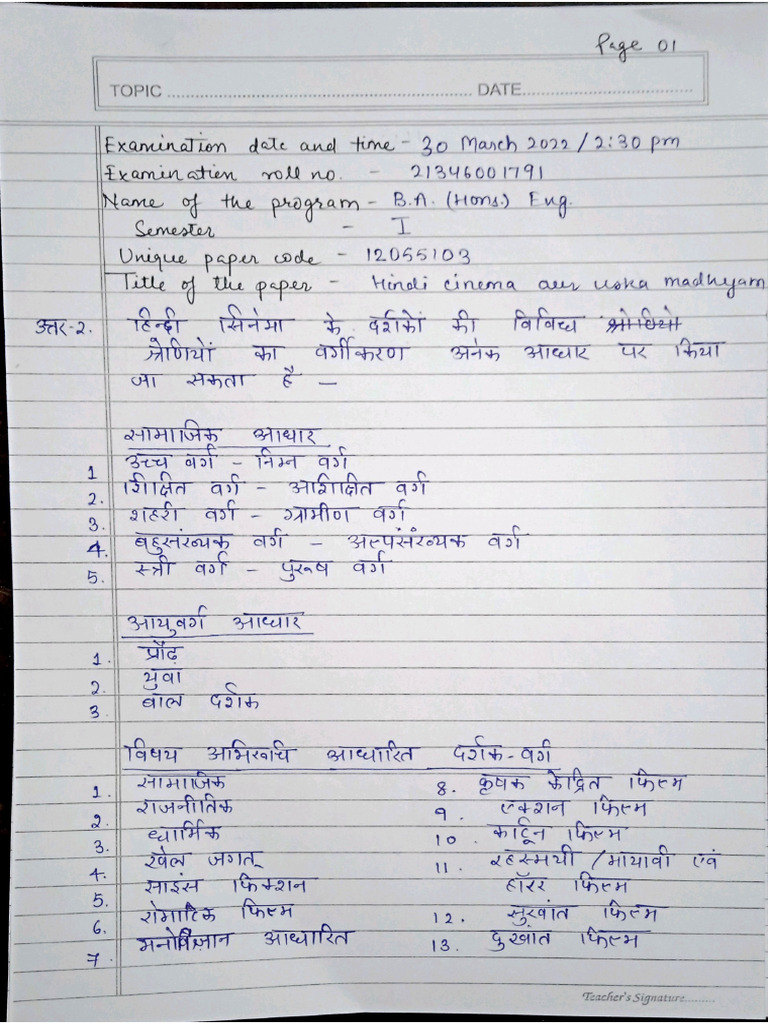 Page 01
TOPIC ........................ DATE........................
Examination date and time - 30 March 2022 / 2:30 pm
Examination roll no. - 21346001791
Name of the program - B.A. (Hons.) Eng.
Semester - I
Unique paper code - 12055103
Title of the paper - Hindi cinema aur uska madhyam
उत्तर-2. हिन्दी सिनेमा के दर्शकों की विविध श्रेणियो
श्रेणियों का वर्गीकरण अनेक आधार पर किया
जा सकता है —
सामाजिक आधार
1 उच्च वर्ग - निम्न वर्ग
2. शिक्षित वर्ग - अशिक्षित वर्ग
3. शहरी वर्ग - ग्रामीण वर्ग
4. बहुसंख्यक वर्ग - अल्पसंख्यक वर्ग
5. स्त्री वर्ग - पुरूष वर्ग
आयुवर्ग आधार
1. प्रौढ़
2. युवा
3. बाल दर्शक
विषय अभिरूचि आधारित दर्शक-वर्ग
1. सामाजिक
2. राजनीतिक
3. धार्मिक
4. खेल जगत्
5. साइंस फिक्शन
6. रोमांटिक फिल्म
7. मनोविज्ञान आधारित
8. कृषक केंद्रित फिल्म
9. एक्शन फिल्म
10. कार्टून फिल्म
11. रहस्मयी / मायावी एवं
हॉरर फिल्म
12. सुखांत फिल्म
13. दुखांत फिल्म
Teacher's Signature.........